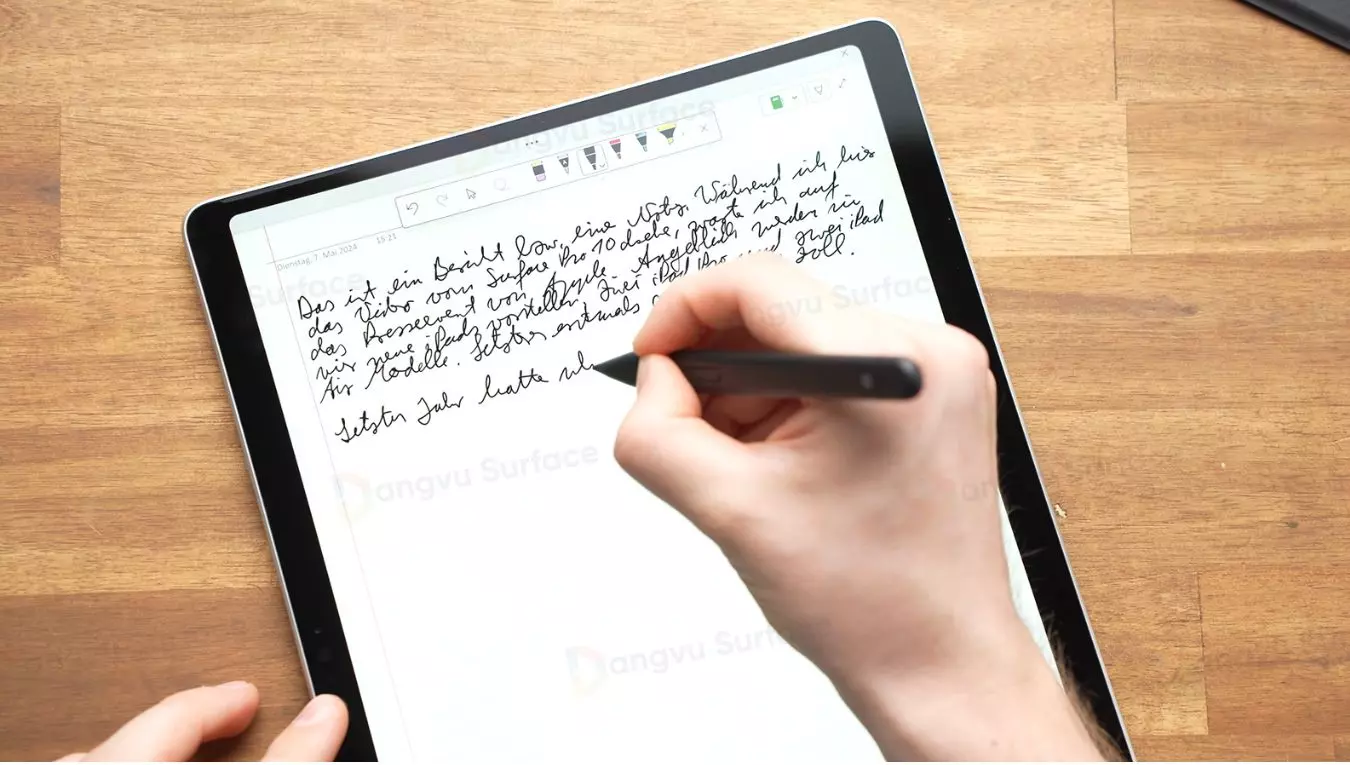 Dangvu Surface
Dienstag, 7. Mai 2024 15:21
Das ist ein Bericht bzw. eine Notiz. Während ich hier
das Video vom Surface Pro 10 drehe, warte ich auf
das Presseevent von Apple. Angeblich werden sie
vier neue iPads vorstellen, zwei iPad Pro und zwei iPad
Air Modelle. Letztere erstmals Zoll.
Letztes Jahr hatte
Surface
Dangvu Surface
Surface
Dangvu Surf